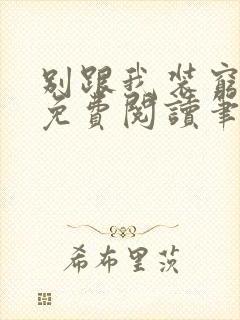 别跟我装窮
免費閱讀筆
希布里茨